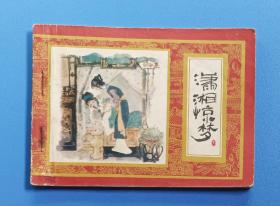 潇湘惊梦